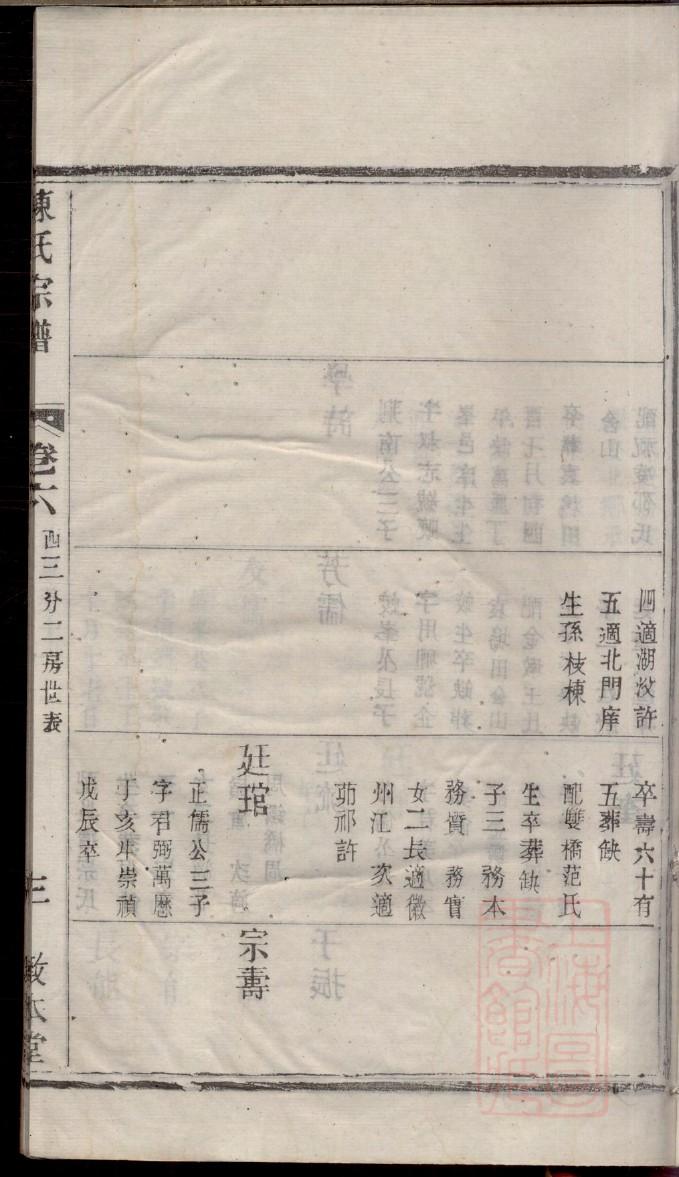 四適湖㳇許
五適北門庠
生孫枝棟
卒壽六十有
五葬缺
配雙橋范氏
生卒葬缺
子三 務本
務實 務實
女二長適徽
州江 次適
茆祁許
廷琯
正儒公三子
字君弼萬厯
丁亥生崇禎
戊辰卒
宗壽
陳氏宗譜
卷六
西三分二房世表
三
敬本堂